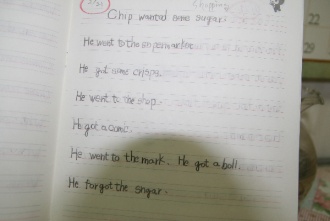 Shopping
Chip wanted some sugar.
He went to the supermarket.
He got some crisps.
He went to the shop.
He got a comic.
He went to the mark. He got a ball.
He forgot the sugar.
22